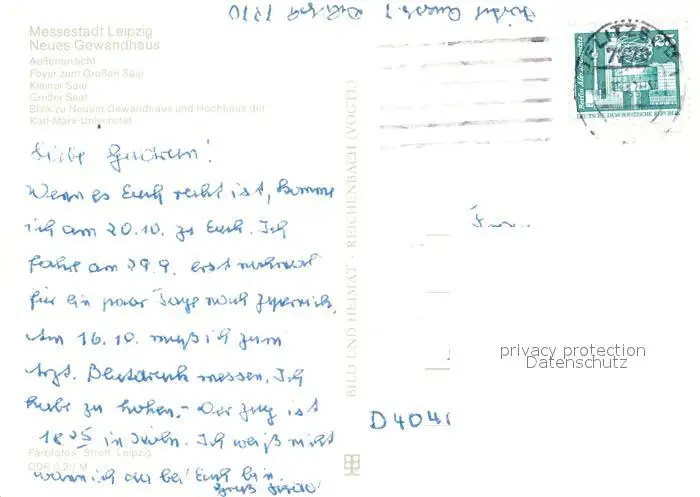 Messestadt Leipzig
Neues Gewandhaus
Außenansicht
Foyer zum Großen Saal
Kleiner Saal
Großer Saal
Blick zu Neuem Gewandhaus und Hochhaus der
Karl-Marx-Universität
Liebe
Wenn es Euch recht ist, komme
ich am 20.10. zu Euch. Ich
fahre am 29.9. erst nochmal
für ein paar Tage nach
Am 16.10. muß ich zum
Arzt. Blutdruck messen. Ich
habe zu hohen. - Der Zug ist
18 25 in Köln. Ich weiß nicht
wann ich da bei Euch bin.
Gruß
Farbfotos: Stroff, Leipzig
DDR 0,20 M
BILD UND HEIMAT · REICHENBACH (VOGTL)
25
DEUTSCHE DEMOKRATISCHE REPUBLIK
privacy protection
Datenschutz
D 4041